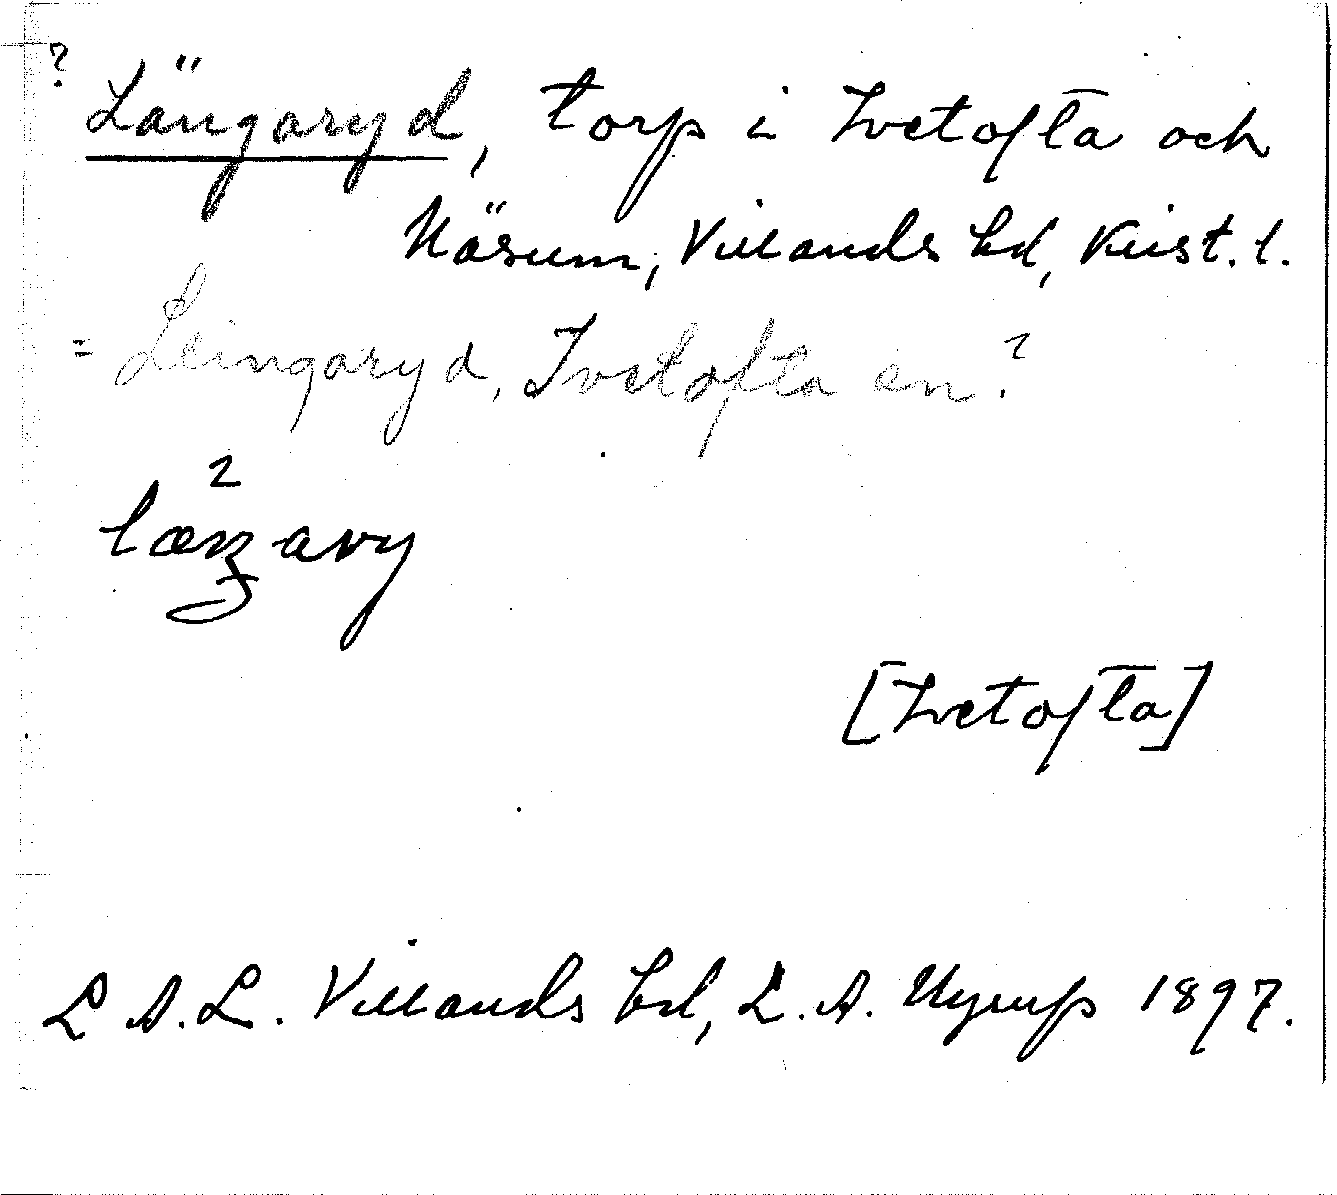 ? Längaryd, torp i Ivetofta och
Näsum, Villands hd, Krist. l.
= Leingaryd, Ivetofta sn.?
2
[Ivetofta]
L A.L. Villands hd, L. A. Nyrup 1897.